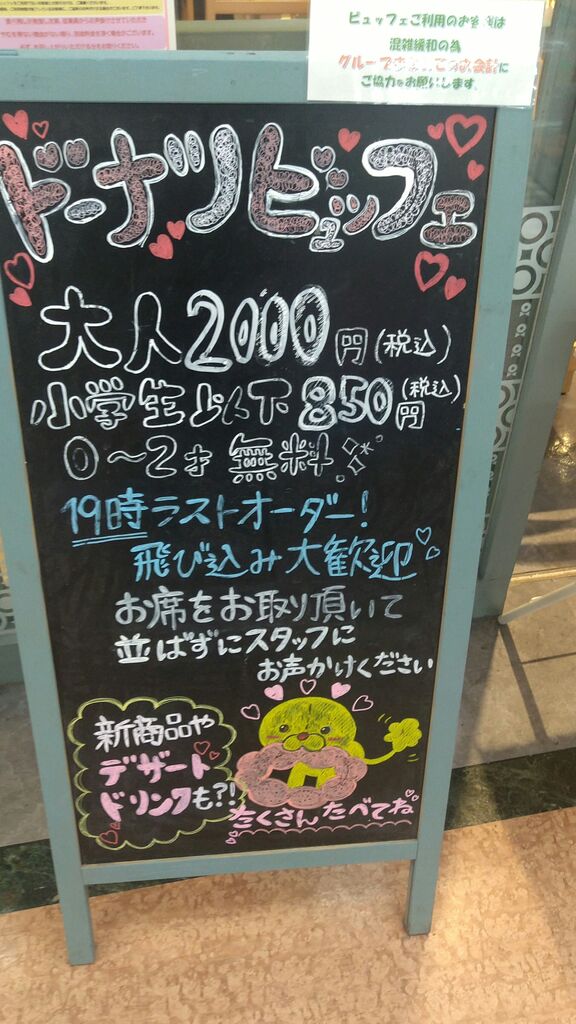 ビュッフェご利用のお客様は
混雑緩和の為
ご協力をお願いします。
ドーナツビュッフェ
大人2000円(税込)
小学生以下850円(税込)
0～2才 無料
19時ラストオーダー!
飛び込み大歓迎
お席をお取り頂いて
並ばずにスタッフに
お声かけください
新商品や
デザート
ドリンクも?!
たくさんたべてね